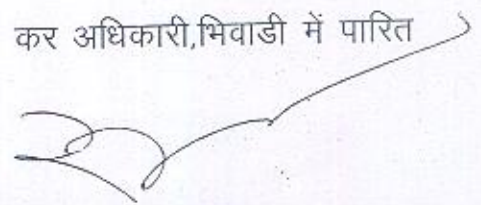 कर अधिकारी,भिवाडी में पारित